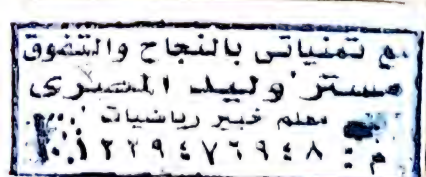 مع تمنياتى بالنجاح والتفوق
مستر / وليد المصرى
معلم خبير رياضيات
م : ٠١٠٢٢٩٤٧٦٩٤٨